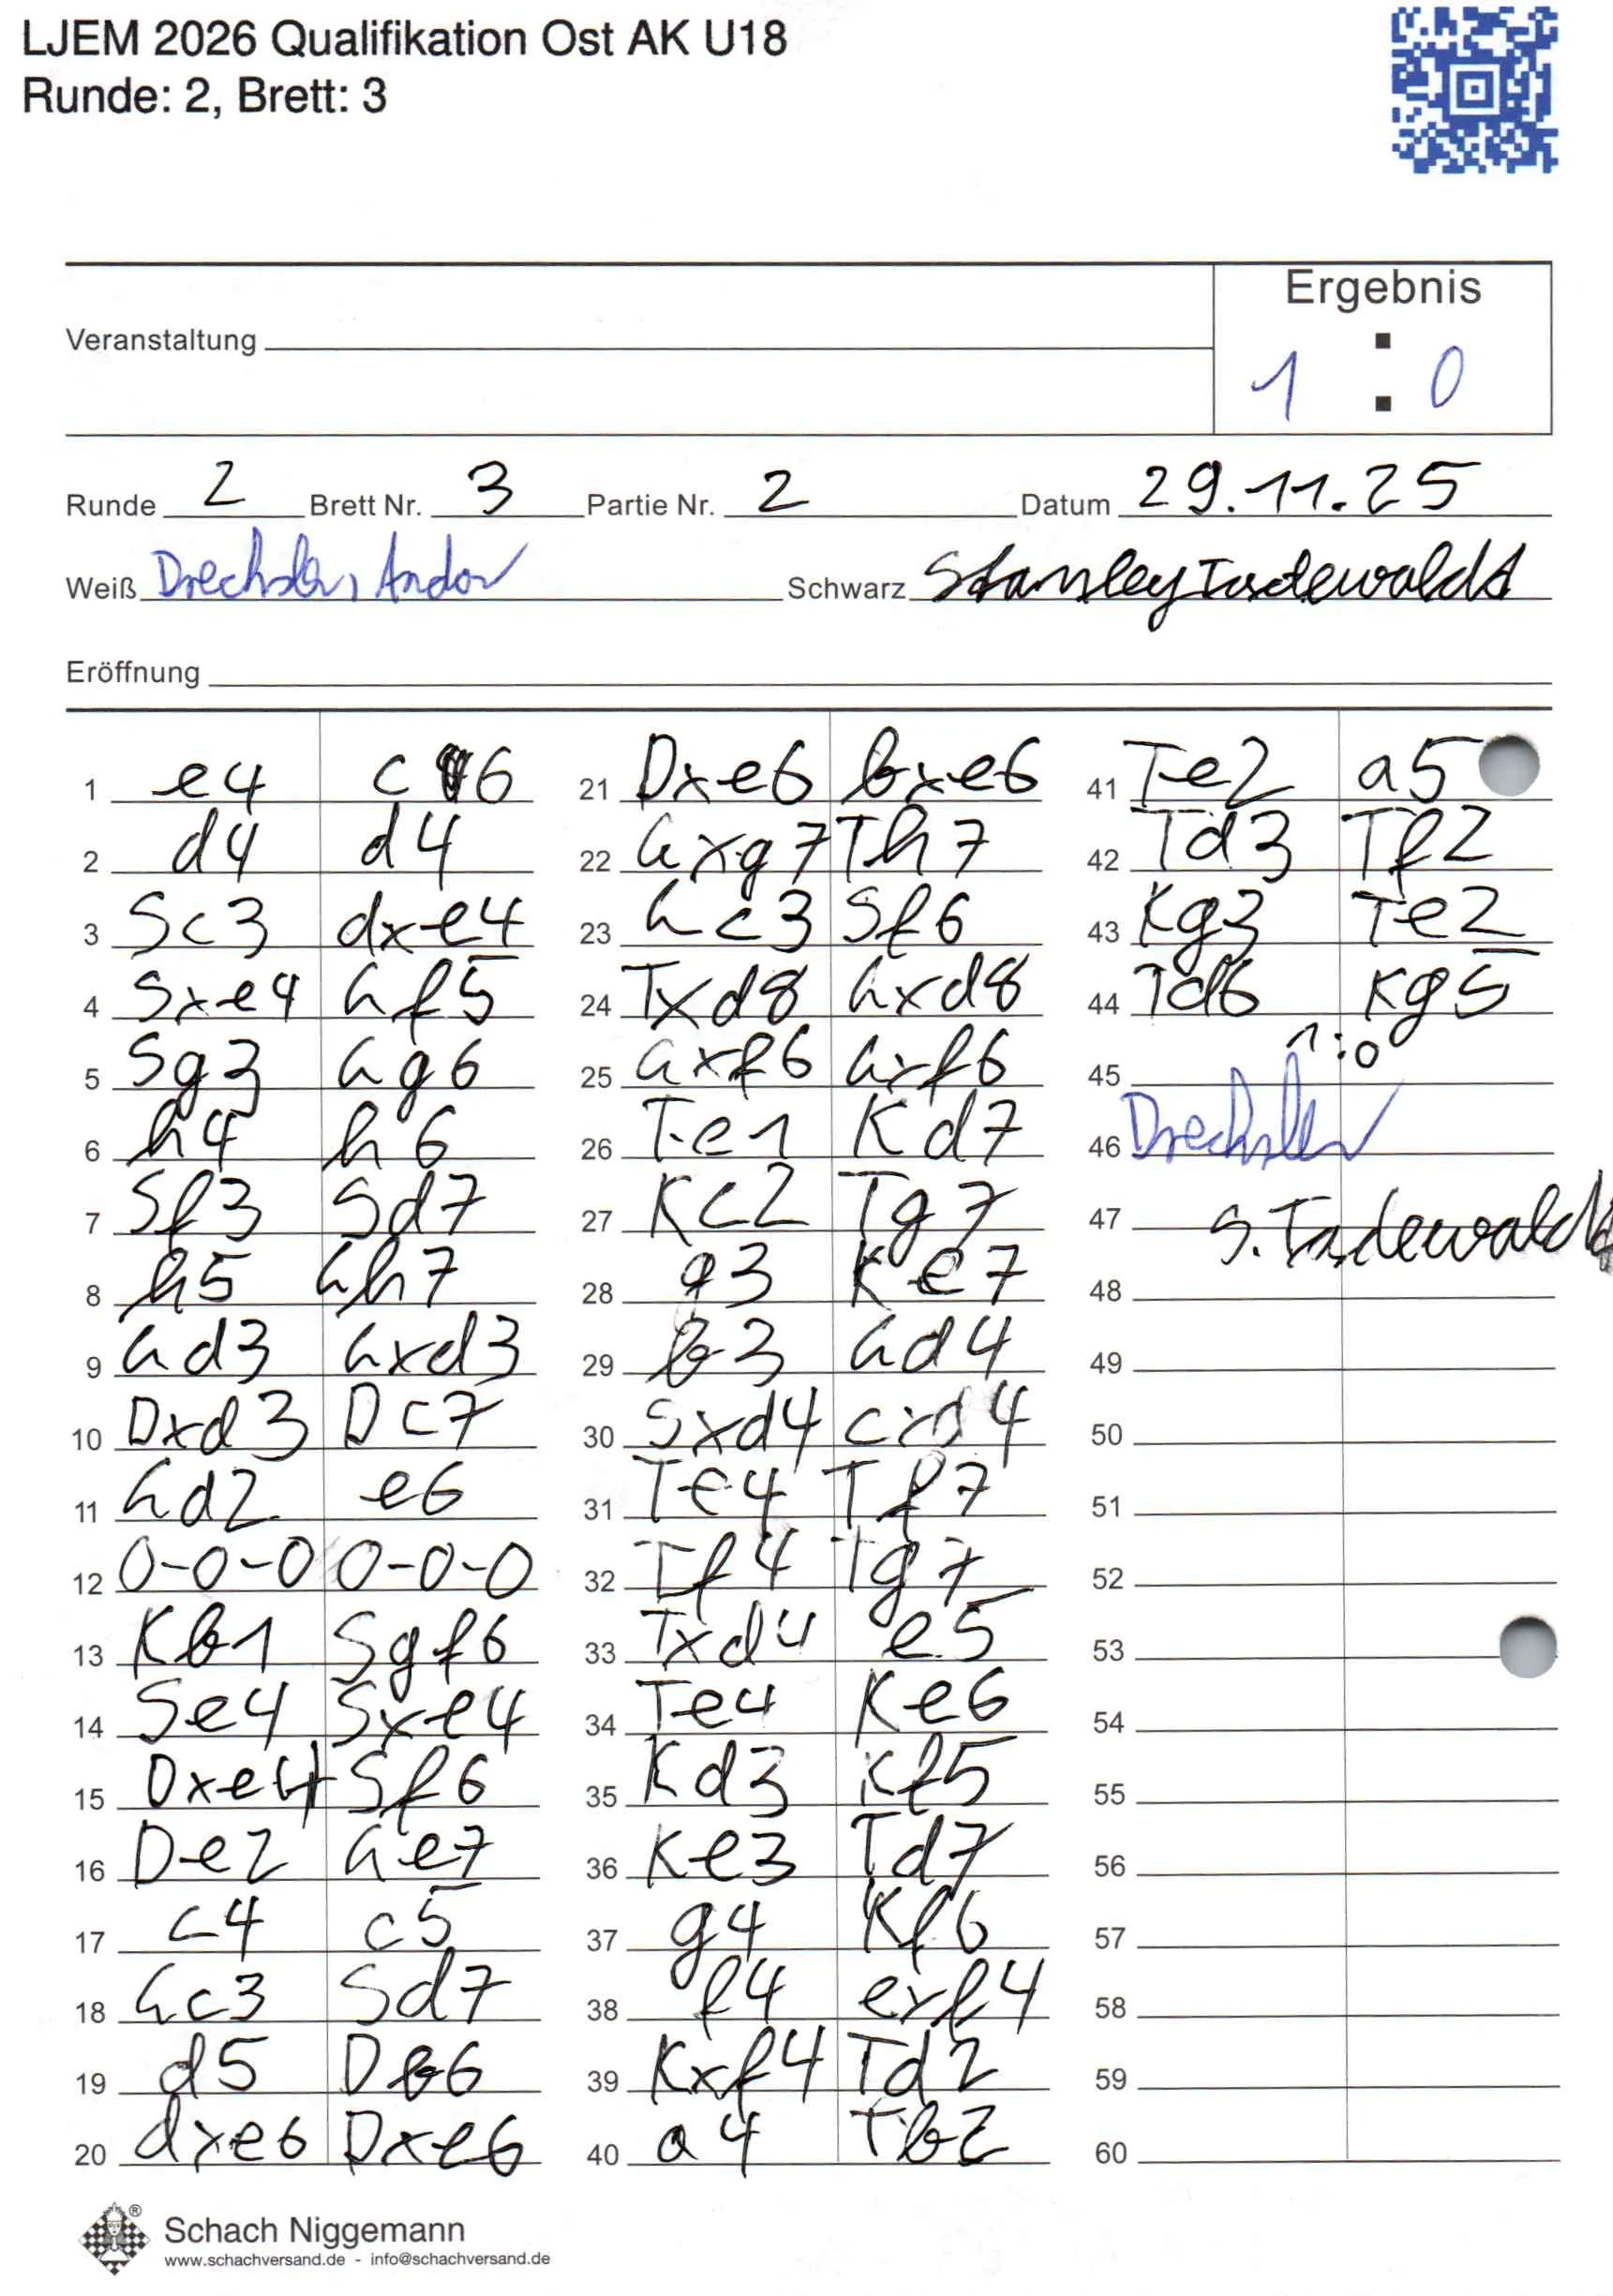 LJEM 2026 Qualifikation Ost AK U18
Runde: 2, Brett: 3
Ergebnis
Veranstaltung
1 : 0
Runde 2 Brett Nr. 3 Partie Nr. 2 Datum 29.11.25
Weiß Drechsler, Andor Schwarz Stanley Tadewaldt
Eröffnung
1 e4 c6
2 d4 d4
3 Sc3 dxe4
4 Sxe4 Lf5
5 Sg3 Lg6
6 h4 h6
7 Sf3 Sd7
8 h5 Lh7
9 Ld3 Lxd3
10 Dxd3 Dc7
11 Ld2 e6
12 0-0-0 0-0-0
13 Kb1 Sgf6
14 Se4 Sxe4
15 Dxe4 Sf6
16 De2 Le7
17 c4 c5
18 Lc3 Sd7
19 d5 Db6
20 dxe6 Dxe6
21 Dxe6 bxe6
22 Lxg7 Th7
23 Lc3 Sf6
24 Txd8 Lxd8
25 Lxf6 Lxf6
26 Te1 Kd7
27 Kc2 Tg7
28 g3 Ke7
29 b3 Ld4
30 Sxd4 cxd4
31 Te4 Tf7
32 Tf4 Tg7
33 Txd4 e5
34 Te4 Ke6
35 Kd3 Kf5
36 Ke3 Td7
37 g4 Kf6
38 f4 exf4
39 Kxf4 Td2
40 a4 Tb2
41 Te2 a5
42 Td3 Tf2
43 Kg3 Te2
44 Td6 Kg5
1:0
45
46 Drechsler
47 S. Tadewaldt
48
49
50
51
52
53
54
55
56
57
58
59
60
®
Schach Niggemann
www.schachversand.de - info@schachversand.de